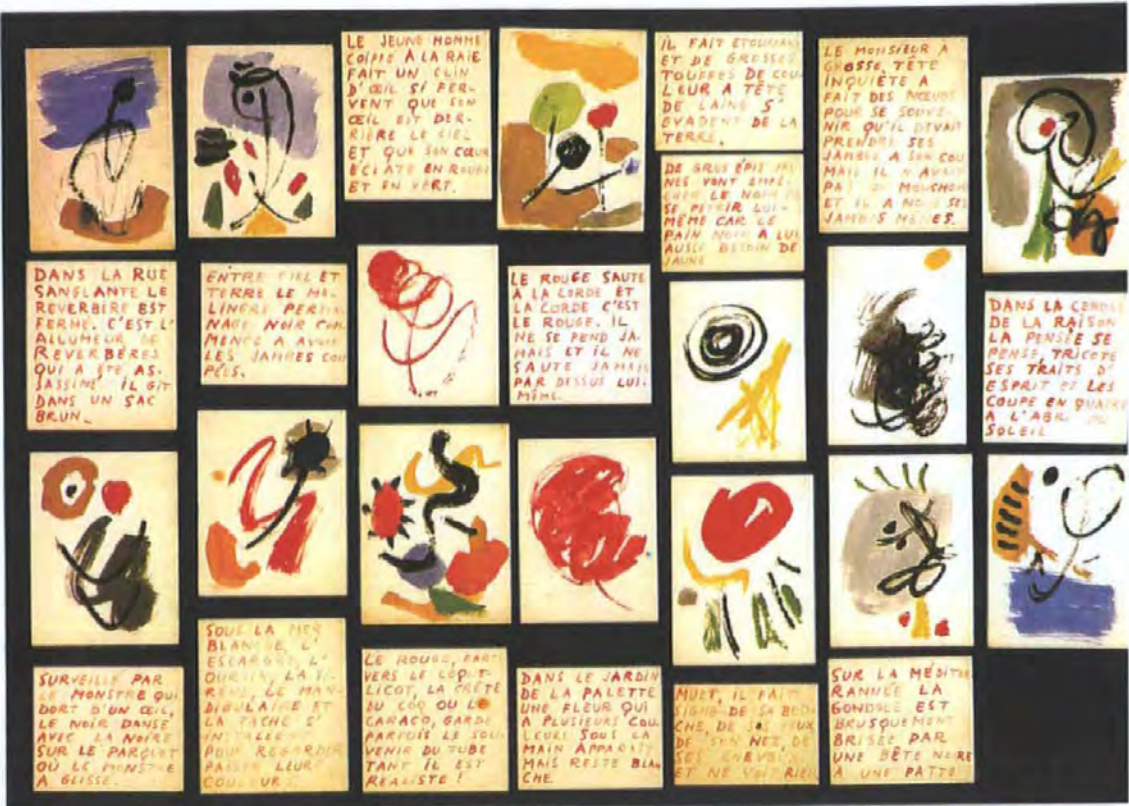 LE JEUNE HOMME
COIFFÉ À LA RAIE
FAIT UN CLIN
D'ŒIL SI FER-
VENT QUE SON
ŒIL EST DER-
RIÈRE LE CIEL
ET QUE SON CŒUR
ÉCLATE EN ROUGE
ET EN VERT.
IL FAIT ETOUFFANT
ET DE GROSSES
TOUFFES DE COU
LEUR A TÊTE
DE LAINE S'
EVADENT DE LA
TERRE.
DE GROS ÉPIS JAU
NES VONT EMPÊ-
CHER LE NOIR DE
SE PETRIR LUI-
MÊME CAR LE
PAIN NOIR A LUI
AUSSI BESOIN DE
JAUNE
LE MONSIEUR À
GROSSE, TÊTE
INQUIÈTE A
FAIT DES NŒUDS
POUR SE SOUVE-
NIR QU'IL DEVAIT
PRENDRE SES
JAMBES A SON COU
MAIS IL N'AVAIT
PAS DE MOUCHOIR
ET IL A NOUÉ SES
JAMBES MÊMES.
DANS LA RUE
SANGLANTE LE
REVERBÈRE EST
FERMÉ. C'EST L'
ALLUMEUR DE
REVERBÈRES
QUI A ÉTÉ AS-
SASSINÉ. IL GIT
DANS UN SAC
BRUN.
ENTRE CIEL ET
TERRE LE MA-
LINGRE PERSON
NAGE NOIR COM
MENCE A AVOIR
LES JAMBES COU
PÉES.
LE ROUGE SAUTE
À LA CORDE ET
LA CORDE C'EST
LE ROUGE. IL
NE SE PEND JA-
MAIS ET IL NE
SAUTE JAMAIS
PAR DESSUS LUI-
MÊME.
DANS LA CERCLE
DE LA RAISON
LA PENSÉE SE
PENSE, TRICOTE
SES TRAITS D'
ESPRIT ET LES
COUPE EN QUATRE
A L'ABRI DU
SOLEIL
SURVEILLÉ PAR
LE MONSTRE QUI
DORT D'UN ŒIL,
LE NOIR DANSE
AVEC LA NOIRE
SUR LE PARQUET
OÙ LE MONSTRE
A GLISSÉ.
SOUS LA MER
BLANCHE, L'
ESCARGOT, L'
OURSIN, LA SI-
RÈNE, LE MAN-
DIBULAIRE ET
LA TACHE S'
INSTALLENT
POUR REGARDER
PASSER LEURS
COULEURS.
LE ROUGE, FAR-
VERS LE COQUE-
LICOT, LA CRÊTE
DU COQ OU LE
CARACO, GARDE
PARFOIS LE SOU-
VENIR DU TUBE
TANT IL EST
RÉALISTE!
DANS LE JARDIN
DE LA PALETTE
UNE FLEUR QUI
A PLUSIEURS COU
LEURS SOUS LA
MAIN APPARAIT
MAIS RESTE BLAN
CHE.
MUET, IL FAIT
SIGNE DE SA BOU-
CHE, DE SES YEUX
DE SON NEZ, DE
SES CHEVEUX
ET NE VOIT RIEN
SUR LA MÉDITER
RANNÉE LA
GONDOLE EST
BRUSQUEMENT
BRISÉE PAR
UNE BÊTE NOIRE
A UNE PATTE